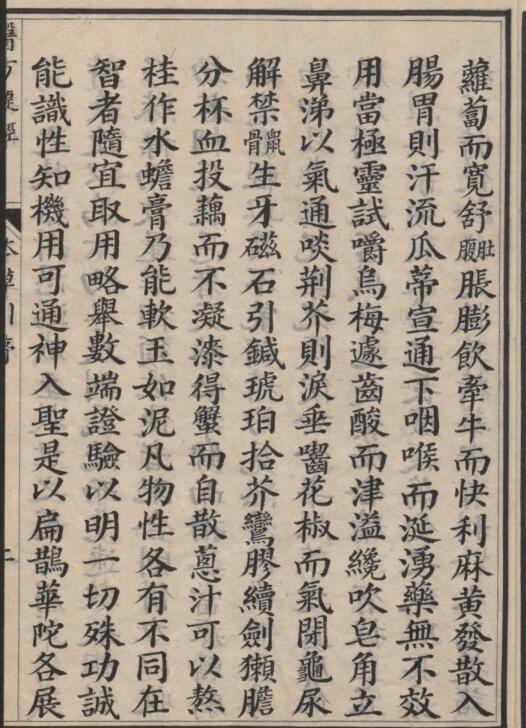 蘿蔔而寬舒肚腹脹膨飲牽牛而快利麻黃發散入
腸胃則汗流瓜蒂宣通下咽喉而涎湧藥無不效
用當極靈試嚼烏梅遽齒酸而津溢纔吹皂角立
鼻涕以氣通啖荆芥則淚垂嚙花椒而氣閉龜尿
解禁鼠骨生牙磁石引鍼琥珀拾芥鸞膠續劍獺膽
分杯血投藕而不凝漆得蟹而自散蔥汁可以熬
桂作水蟾膏乃能軟玉如泥凡物性各有不同在
智者隨宜取用略舉數端證驗以明一切殊功誠
能識性知機用可通神入聖是以扁鵲華陀各展
醫方捷徑